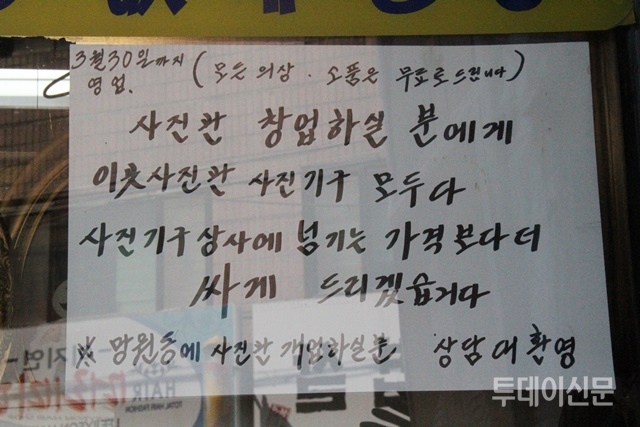 3월30일까지
영업. (모든 의상 · 소품은 무료로 드립니다)
사진관 창업하실 분에게
이웃사진관 사진기구 모두다
사진기구상사에 넘기는 가격보다더
싸게 드리겠습니다
※ 망원동에 사진관 개업하실분 상담 대환영
HAIR
투데이신문